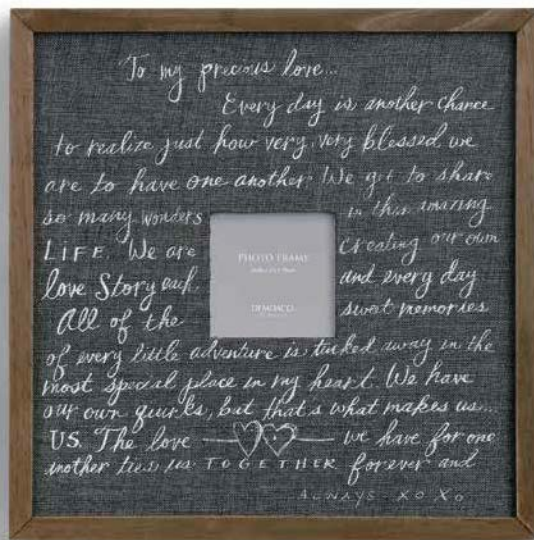 To my precious love...
Every day is another chance
to realize just how very, very blessed we
are to have one another. We get to share
so many wonders in this amazing
LIFE. We are creating our own
love Story each and every day
All of the sweet memories
of every little adventure is tucked away in the
most special place in my heart. We have
our own quirks, but that's what makes us...
US. The love we have for one
another ties us TOGETHER forever and
ALWAYS XOXO
PHOTO FRAME
DEMDACO